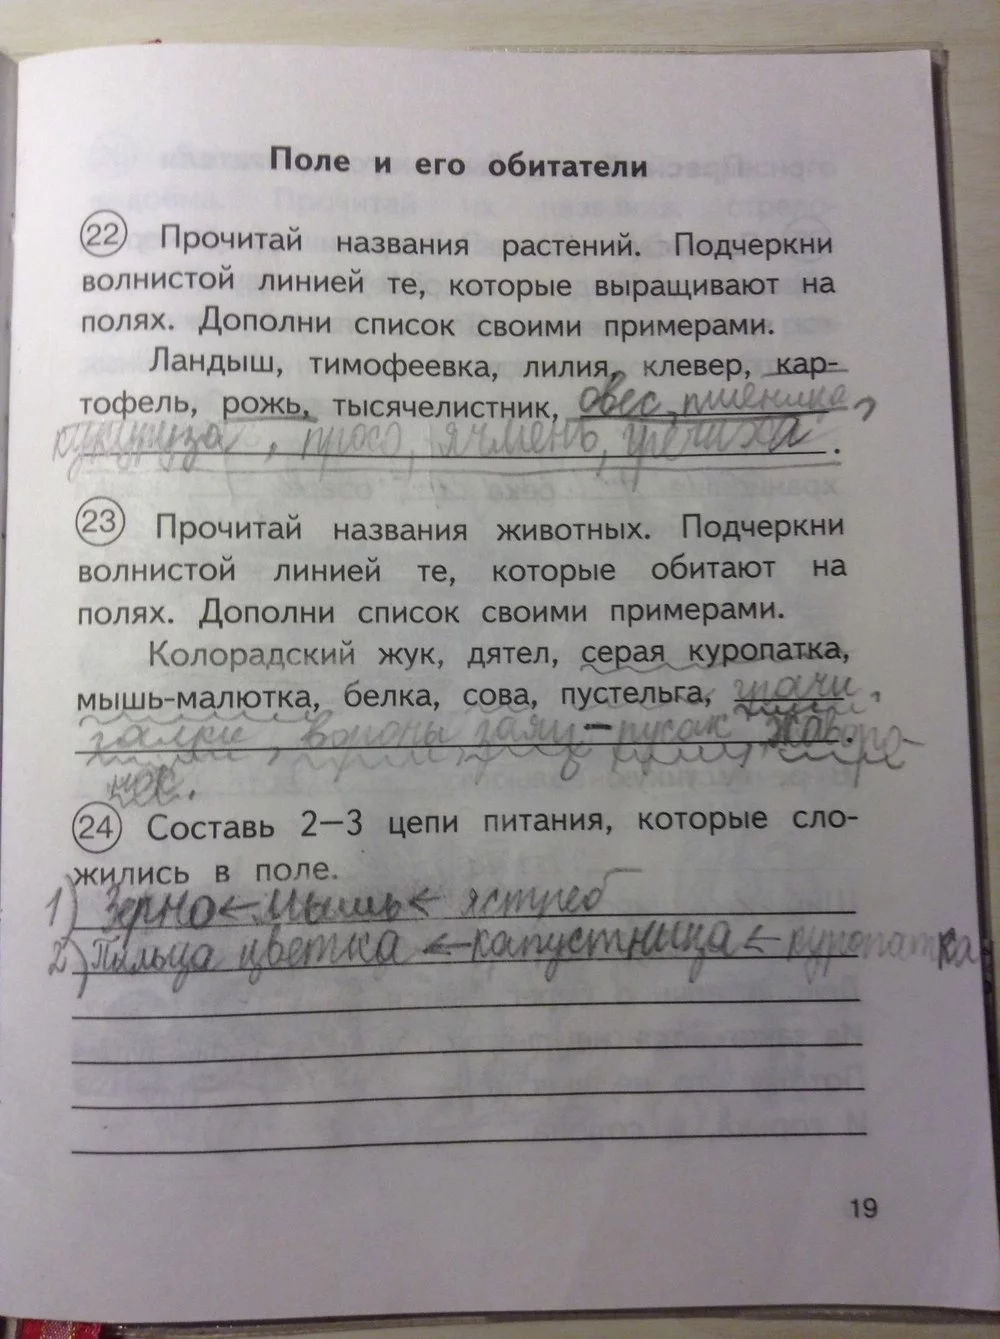 Поле и его обитатели
22 Прочитай названия растений. Подчеркни
волнистой линией те, которые выращивают на
полях. Дополни список своими примерами.
Ландыш, тимофеевка, лилия, клевер, кар-
тофель, рожь, тысячелистник, овес, пшеница,
кукуруза, просо, ячмень, гречиха.
23 Прочитай названия животных. Подчеркни
волнистой линией те, которые обитают на
полях. Дополни список своими примерами.
Колорадский жук, дятел, серая куропатка,
мышь-малютка, белка, сова, пустельга, грачи,
галки, вороны заяц-русак жаворо-
нок.
24 Составь 2—3 цепи питания, которые сло-
жились в поле.
1) Зерно ← мышь ← ястреб
2) Пыльца цветка ← капустница ← куропатка
19